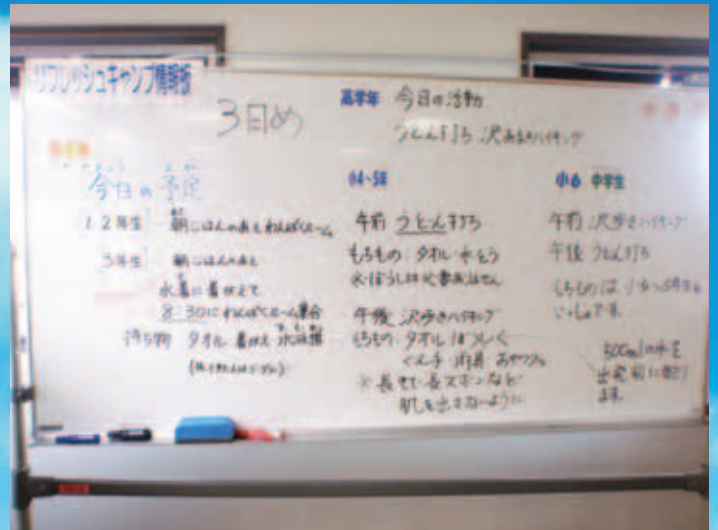 リフレッシュキャンプ情報板
3日め
高学年 今日の活動
うどん打ち 沢あるきハイキング
今日の予定
1.2年生 朝ごはんのあとわんぱくルーム
3年生 朝ごはんのあと
水着に着がえて
8:30にわんぱくルーム集合
持ち物 タオル 着がえ 水泳帽
小4~5年
午前 うどん打ち
もちもの: タオル 水とう
午後 沢歩きハイキング
もちもの: タオル ぼうし
ぐん手 雨具
※長そで長ズボンなど
肌を出さないように
小6 中学生
午前 沢歩きハイキング
午後 うどん打ち
もちものは 小4~5年と
いっしょです。
500mlの水を
出発前に配り
ます。